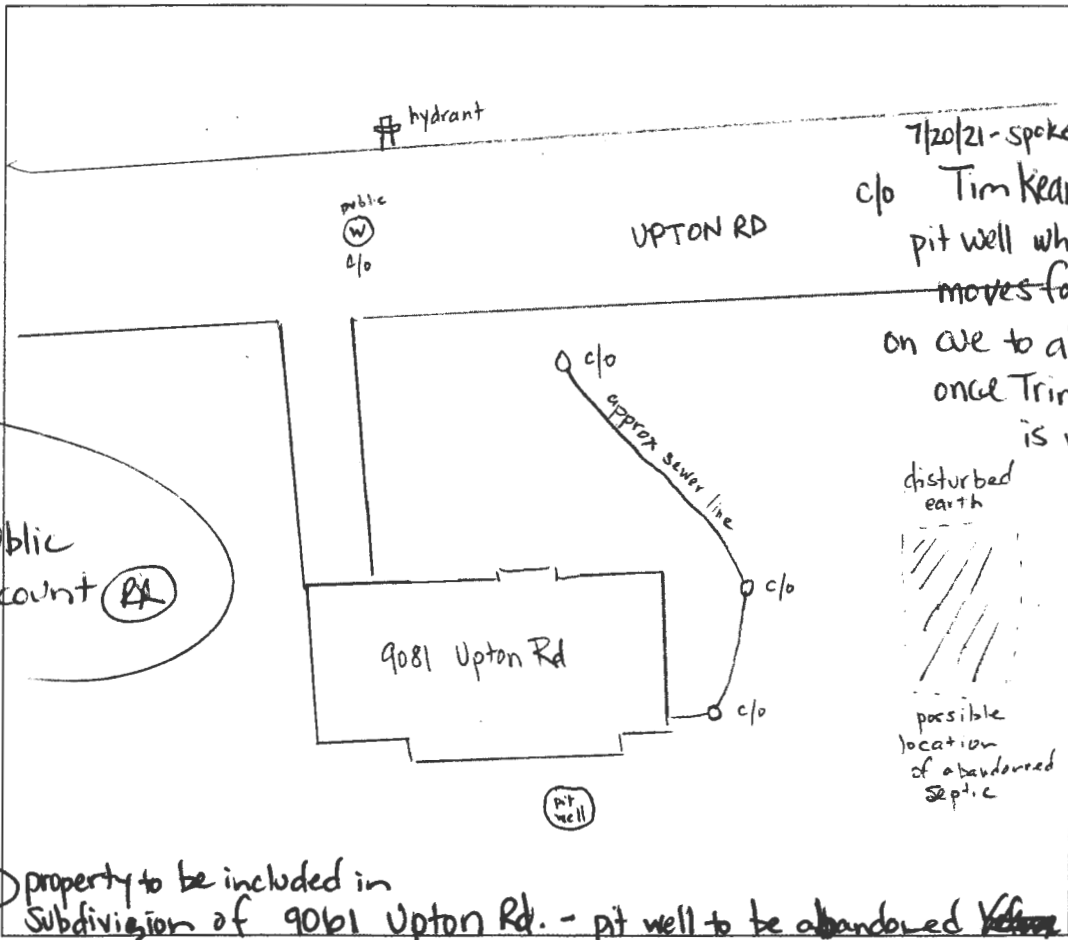 hydrant
7/20/21 - spoke
c/o Tim Kear
public
W
c/o
UPTON RD
pit well wh
moves fo
on ave to a
once Trin
is
c/o
approx sewer line
disturbed
earth
blic
count
c/o
9081 Upton Rd
c/o
possible
location
of abandonned
septic
pit
well
property to be included in
Subdivision of 9061 Upton Rd. - pit well to be abandoned